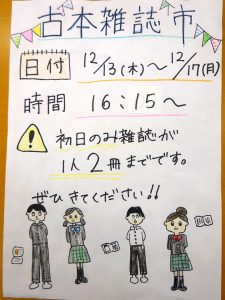 古本雑誌市
日付 12/13(木)〜12/17(月)
時間 16:15〜
初日のみ雑誌が
1人2冊までです。
ぜひきてください!!